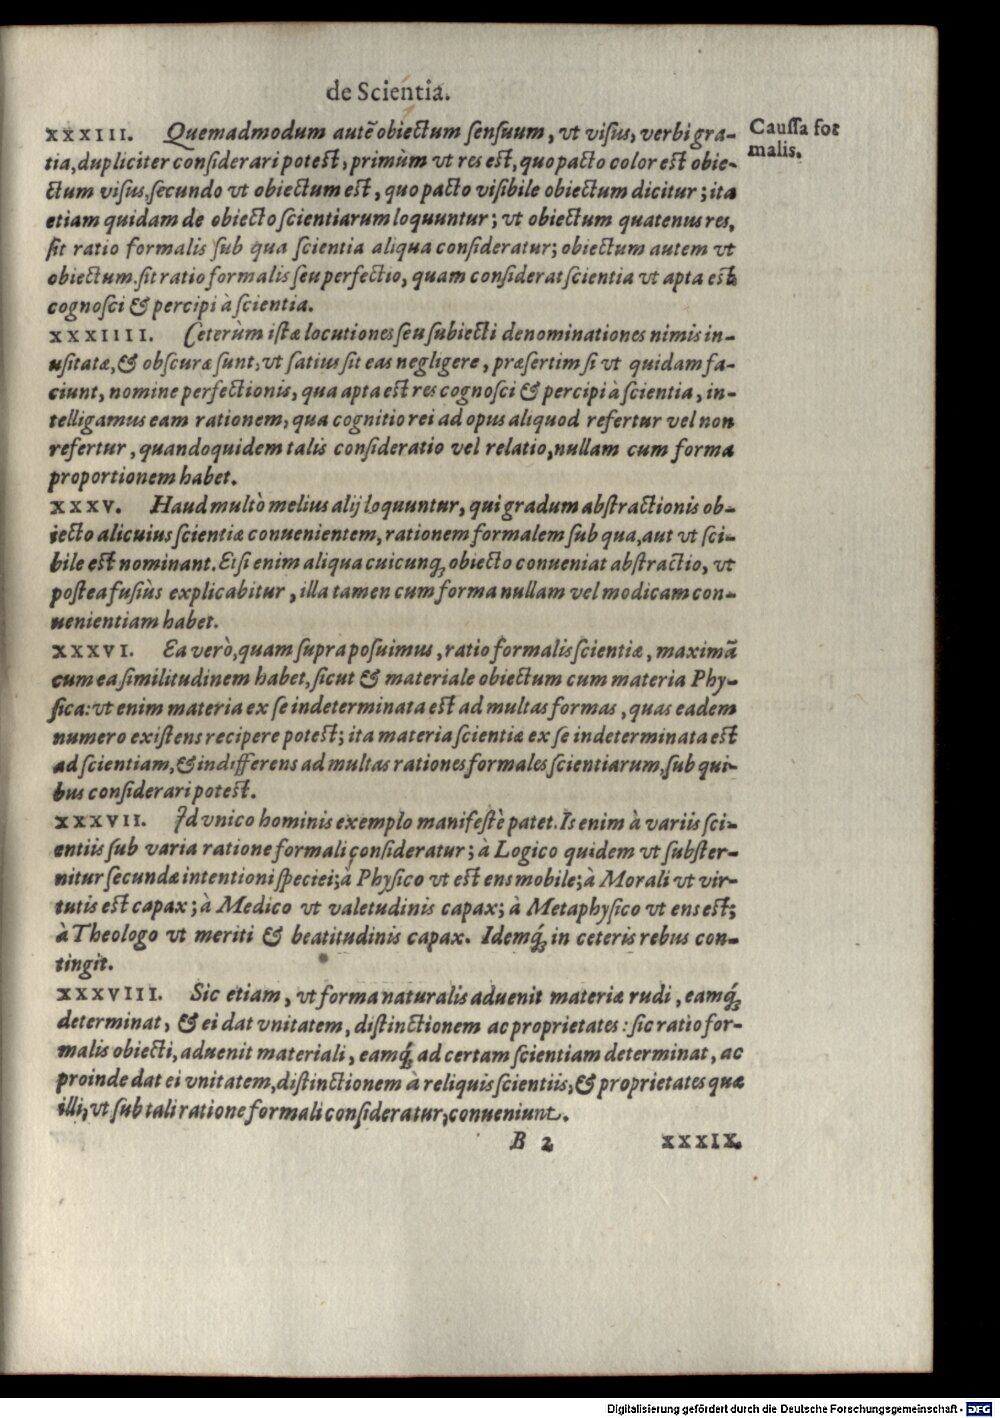 de Scientia.
XXXIII. Quemadmodum autẽ obiectum sensuum, vt visus, verbi gra-
tia, dupliciter considerari potest, primùm vt res est, quo pacto color est obie-
ctum visus, secundo vt obiectum est, quo pacto visibile obiectum dicitur; ita
etiam quidam de obiecto scientiarum loquuntur; vt obiectum quatenus res,
sit ratio formalis sub qua scientia aliqua consideratur; obiectum autem vt
obiectum. sit ratio formalis seu perfectio, quam considerat scientia vt apta est
cognosci & percipi à scientia.
Caussa for
malis.
XXXIIII. Ceterùm istæ locutiones seu subiecti denominationes nimis in-
usitatæ, & obscuræ sunt, vt satius sit eas negligere, præsertim si vt quidam fa-
ciunt, nomine perfectionis, qua apta est res cognosci & percipi à scientia, in-
telligamus eam rationem, qua cognitio rei ad opus aliquod refertur vel non
refertur, quandoquidem talis consideratio vel relatio, nullam cum forma
proportionem habet.
XXXV. Haud multò melius alij loquuntur, qui gradum abstractionis ob-
iecto alicuius scientiæ conuenientem, rationem formalem sub qua, aut vt sci-
bile est nominant. Etsi enim aliqua cuicunq; obiecto conueniat abstractio, vt
postea fusiùs explicabitur, illa tamen cum forma nullam vel modicam con-
uenientiam habet.
XXXVI. Ea verò, quam supra posuimus, ratio formalis scientiæ, maximã
cum ea similitudinem habet, sicut & materiale obiectum cum materia Phy-
sica: vt enim materia ex se indeterminata est ad multas formas, quas eadem
numero existens recipere potest; ita materia scientiæ ex se indeterminata est
ad scientiam, & indifferens ad multas rationes formales scientiarum, sub qui-
bus considerari potest.
XXXVII. Id vnico hominis exemplo manifestè patet. Is enim à variis sci-
entiis sub varia ratione formali consideratur; à Logico quidem vt subster-
nitur secundæ intentioni speciei; à Physico vt est ens mobile; à Morali vt vir-
tutis est capax; à Medico vt valetudinis capax; à Metaphysico vt ens est;
à Theologo vt meriti & beatitudinis capax. Idemq́; in ceteris rebus con-
tingit.
XXXVIII. Sic etiam, vt forma naturalis aduenit materiæ rudi, eamq́;
determinat, & ei dat vnitatem, distinctionem ac proprietates: sic ratio for-
malis obiecti, aduenit materiali, eamq́; ad certam scientiam determinat, ac
proinde dat ei vnitatem, distinctionem à reliquis scientiis, & proprietates quæ
illi, vt sub tali ratione formali consideratur, conueniunt.
B 2 XXXIX.
Digitalisierung gefördert durch die Deutsche Forschungsgemeinschaft - DFG